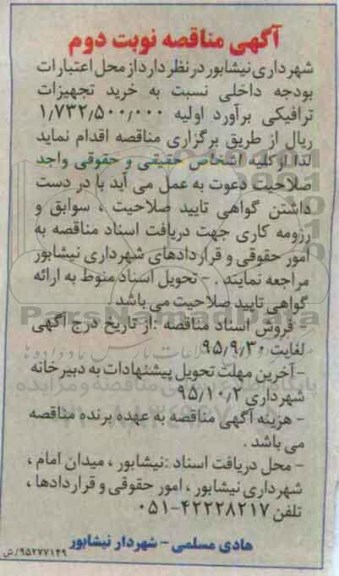 آگهی مناقصه نوبت دوم
شهرداری نیشابور در نظر دارد از محل اعتبارات
بودجه داخلی نسبت به خرید تجهیزات
ترافیکی برآورد اولیه ۱/۷۳۲/۵۰۰/۰۰۰
ریال از طریق برگزاری مناقصه اقدام نماید
لذا از کلیه اشخاص حقیقی و حقوقی واجد
صلاحیت دعوت به عمل می آید با در دست
داشتن گواهی تایید صلاحیت ، سوابق و
رزومه کاری جهت دریافت اسناد مناقصه به
امور حقوقی و قراردادهای شهرداری نیشابور
مراجعه نمایند . - تحویل اسناد منوط به ارائه
گواهی تایید صلاحیت می باشد .
- فروش اسناد مناقصه :از تاریخ درج آگهی
لغایت ۹۵/۹/۳۰
- آخرین مهلت تحویل پیشنهادات به دبیرخانه
شهرداری ۹۵/۱۰/۲
- هزینه آگهی مناقصه به عهده برنده مناقصه
می باشد .
- محل دریافت اسناد :نیشابور ، میدان امام ،
شهرداری نیشابور ، امور حقوقی و قراردادها ،
تلفن ۴۲۲۲۸۲۱۷-۰۵۱
هادی مسلمی - شهردار نیشابور
۹۵۲۷۷۱۴۹/ش
ParsNamadData